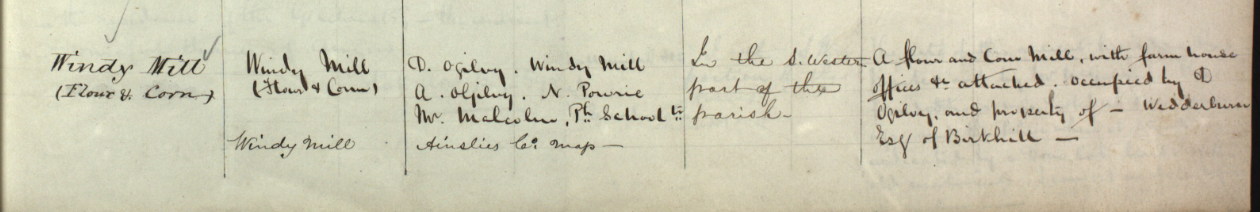 Windy Mill
(Flour & Corn)
Windy Mill
(Flour & Corn)
Windy Mill
D. Ogilvy. Windy Mill
A. Ogilvy. N. Powrie
Mr. Malcolm, Ph. School Tr.
Ainslies Co. Map —
In the S. Western
part of the
parish—
A flour and Corn Mill, with farm house
offices &c attached. occupied by D
Ogilvy. and property of — Wedderburn
Esq of Birkhill —